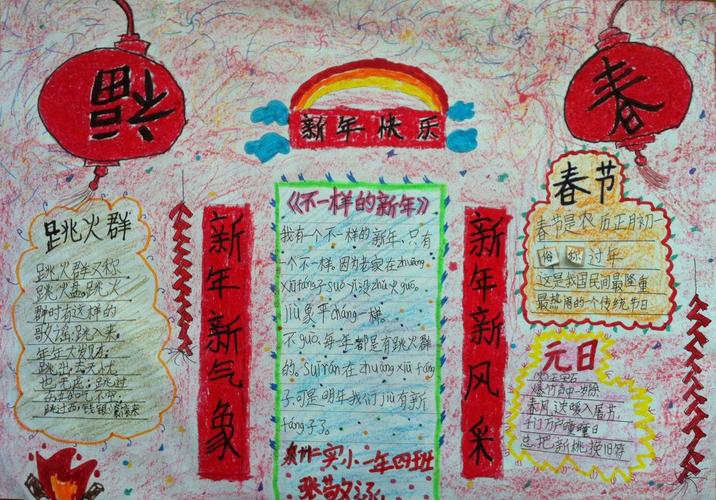 福
春
新年快乐
跳火群
跳火群又称
跳火盘,跳火
群时有这样的
歌谣:跳入来,
年年大发财;
跳出去,无忧
也无虑;跳过
新年新气象
《不一样的新年》
我有一个不一样的新年、只有
一个不一样。因为老家在zhuāng
xiū fáng子suǒ以没zhù过guò。
jiù象平cháng一样。
不guò,每年都是有跳火群
的。suī rán在zhuāng xiū fáng
子.可是明年我们jiù有新
fáng子了。
实小一年四班
新年新风采
春节
春节是农历正月初一
俗称过年
这是我国民间最隆重
最热闹的一个传统节日
元日
爆竹声中一岁除
春风送暖入屠苏
千门万户曈曈日
总把新桃换旧符